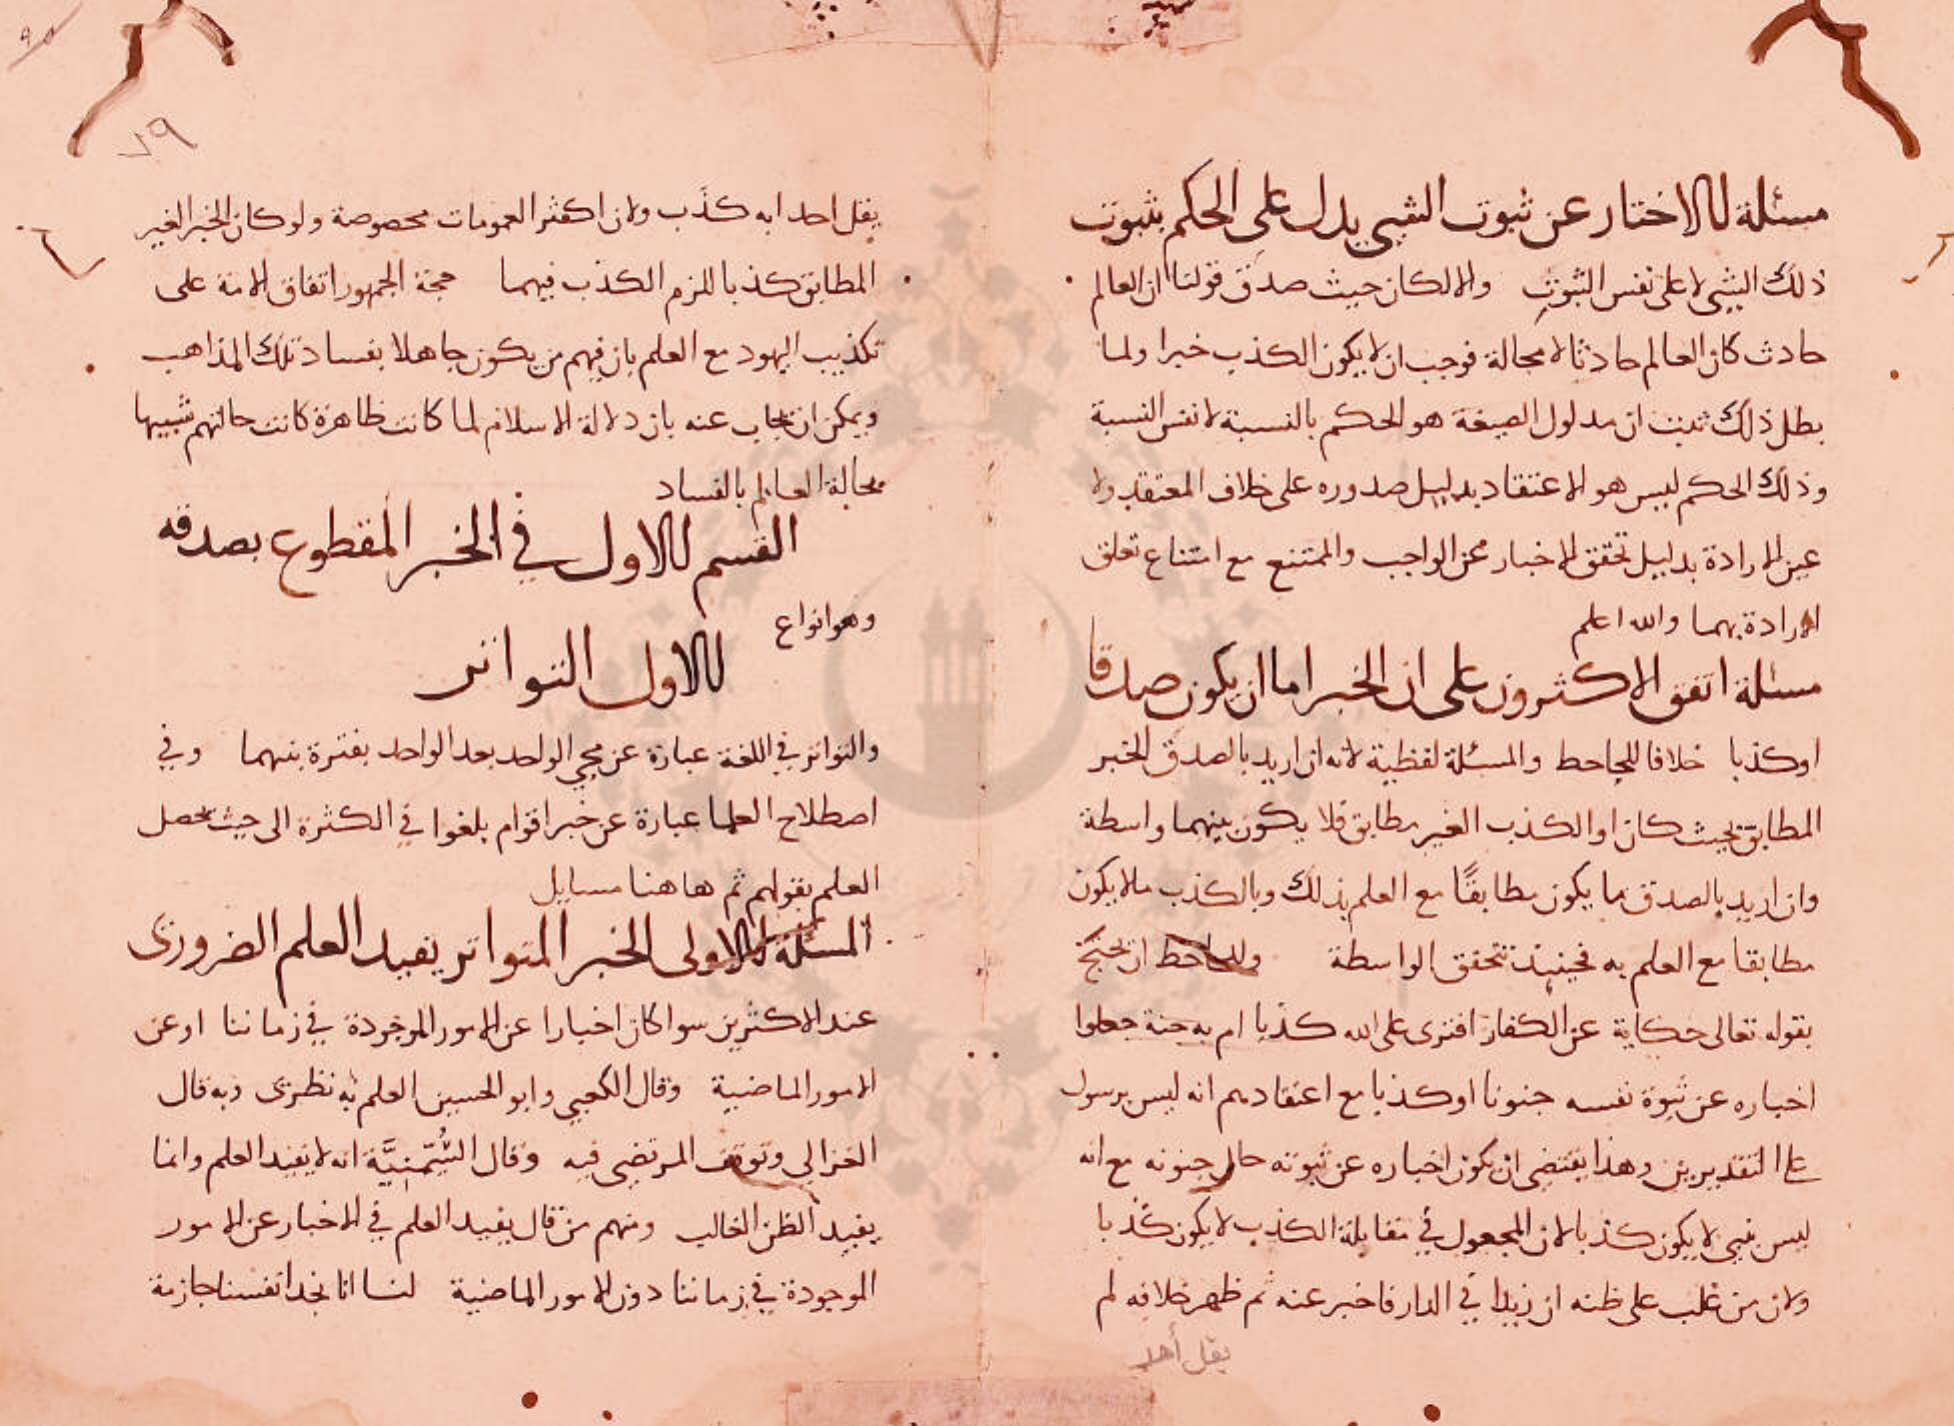 مسئلة الاخبار عن ثبوت الشيي يدل على الحكم بثبوت
ذلك الشيي لا على نفس الثبوت والا لكان حيث صدق قولنا ان العالم
حادث كان العالم حادثا لا محالة فوجب ان لا يكون الكذب خبرا ولما
بطل ذلك ثبت ان مدلول الصيغة هو الحكم بالنسبة لا نفس النسبة
وذلك الحكم ليس هو الاعتقاد بدليل صدوره على خلاف المعتقد ولا
عين الارادة بدليل تحقق الاخبار عن الواجب والممتنع مع امتناع تعلق
الارادة بهما والله اعلم
مسئلة اتفق الاكثرون على ان الخبر اما ان يكون صدقا
اوكذبا خلافا للجاحط والمسئلة لفظية لانه ان اريد بالصدق الخبر
المطابق بحيث كان او الكذب الغير مطابق فلا يكون بينهما واسطة
وان اريد بالصدق ما يكون مطابقًا مع العلم بذلك وبالكذب ما لا يكون
مطابقا مع العلم به فحينيذ تتحقق الواسطة وللجاحط ان يحتج
بقوله تعالى حكاية عن الكفار افترى على الله كذبا ام به جنة جعلوا
اخباره عن نبوة نفسه جنونا او كذبا مع اعتقادهم انه ليس برسول
على التقديرين وهذا يقتضي ان يكون اخباره عن نبوته حال جنونه مع انه
ليس بنبي لا يكون كذبا لان المجعول في مقابلة الكذب لا يكون كذبا
ولان من غلب على ظنه ان زيدا في الدار فاخبر عنه ثم ظهر خلافه لم
يقل أحد
٧٩
يقل احد انه كذب ولان اكثر العمومات مخصوصة ولو كان الخبر الغير
المطابق كذبا للزم الكذب فيهما حجة الجمهور اتفاق الامة على
تكذيب اليهود مع العلم بان فيهم من يكون جاهلا بفساد تلك المذاهب
ويمكن ان يجاب عنه بان دلالة الاسلام لما كانت ظاهرة كانت حالتهم شبيها
بحالة العالم بالفساد
القسم الاول في الخبر المقطوع بصدقه
وهو انواع
الاول التواتر
والتواتر في اللغة عبارة عن مجي الواحد بعد الواحد بفترة بينهما وفي
اصطلاح العلما عبارة عن خبر اقوام بلغوا في الكثرة الى حيث يحصل
العلم بقولهم ثم هاهنا مسايل
المسئلة الاولى الخبر المتواتر يفيد العلم الضروري
عند الاكثرين سوا كان اخبارا عن الامور الموجودة في زماننا او عن
الامور الماضية وقال الكعبي وابو الحسين العلم به نظرى وبه قال
الغزالي وتوقف المرتضى فيه وقال السُّمّنِيَّة انه لا يفيد العلم وانما
يفيد الظن الغالب ومنهم من قال يفيد العلم في الاخبار عن الامور
الموجودة في زماننا دون الامور الماضية لنا انا نجد انفسنا جازمة